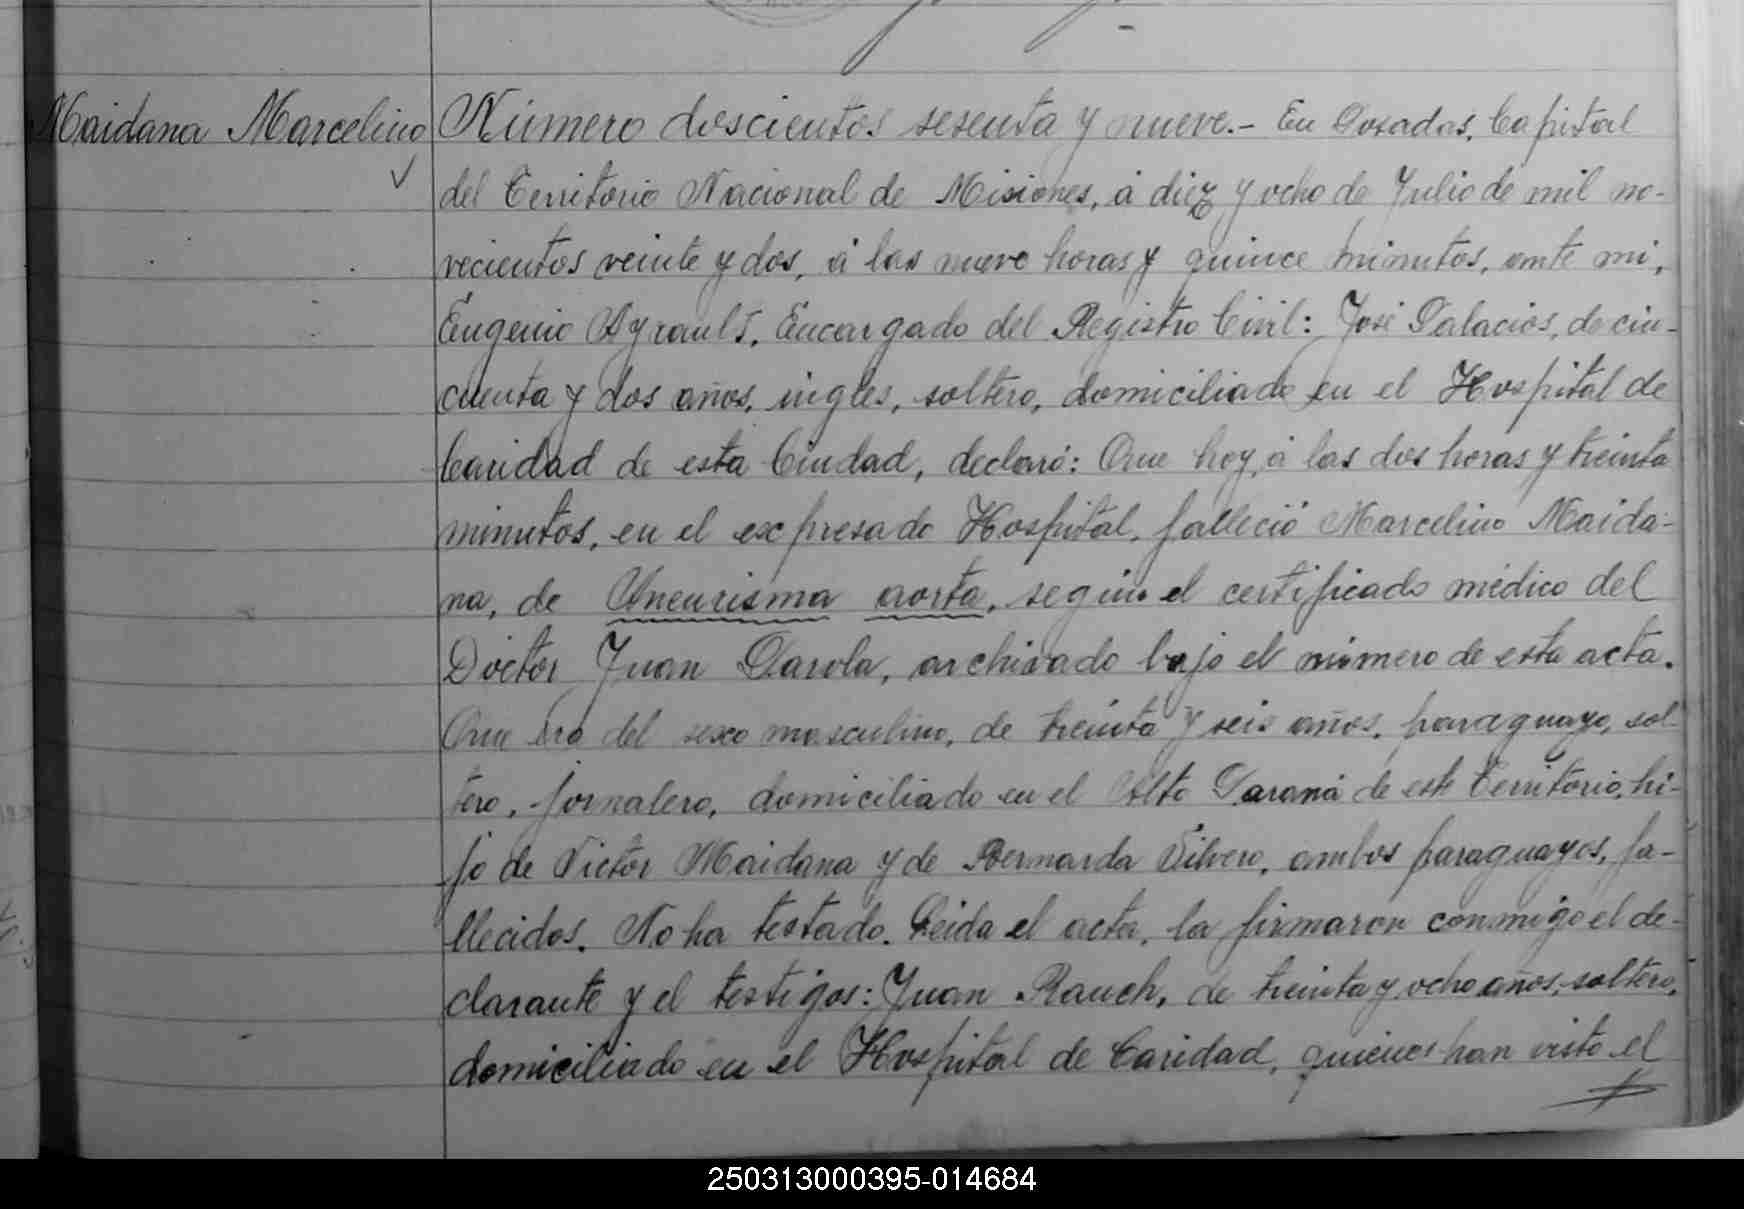 Maidana Marcelino
Número doscientos sesenta y nueve.- En Posadas, Capital
del Territorio Nacional de Misiones, á diez y ocho de Julio de mil no-
vecientos veinte y dos, á las nueve horas y quince minutos, ante mi,
Eugenio Ayrault, Encargado del Registro Civil: José Palacios, de cin-
cuenta y dos años, ingles, soltero, domiciliado en el Hospital de
Caridad de esta Ciudad, declaró: Que hoy, á las dos horas y treinta
minutos, en el expresado Hospital, falleció Marcelino Maida-
na, de Aneurisma aorta, segun el certificado médico del
Doctor Juan Darola, archivado bajo el número de esta acta.
Que era del sexo masculino, de treinta y seis años, paraguayo, sol-
tero, jornalero, domiciliado en el Alto Paraná de este Territorio, hi-
jo de Victor Maidana y de Bernarda Silvero, ambos paraguayos, fa-
llecidos. No ha testado. Leida el acta, la firmaron conmigo el de-
clarante y el testigos: Juan Rauch, de treinta y ocho años, soltero,
domiciliado en el Hospital de Caridad, quienes han visto el
250313000395-014684